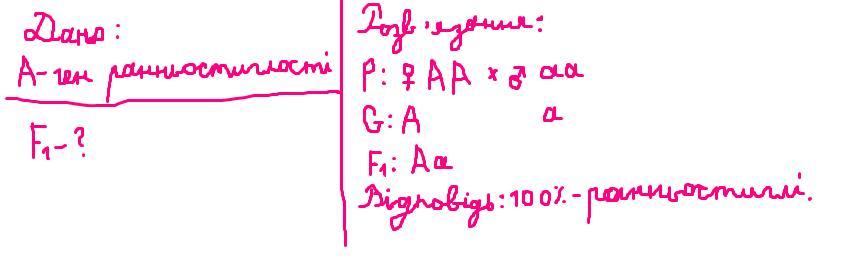 Дано:
А-ген ранньостиглості
F₁-?
Розв'язання:
P: ♀ АА × ♂ аа
G: А а
F₁: Аа
Відповідь: 100%-ранньостиглі.